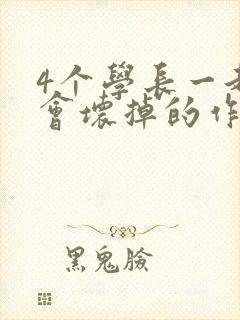 4个學長一起
會壞掉的作
黑鬼臉